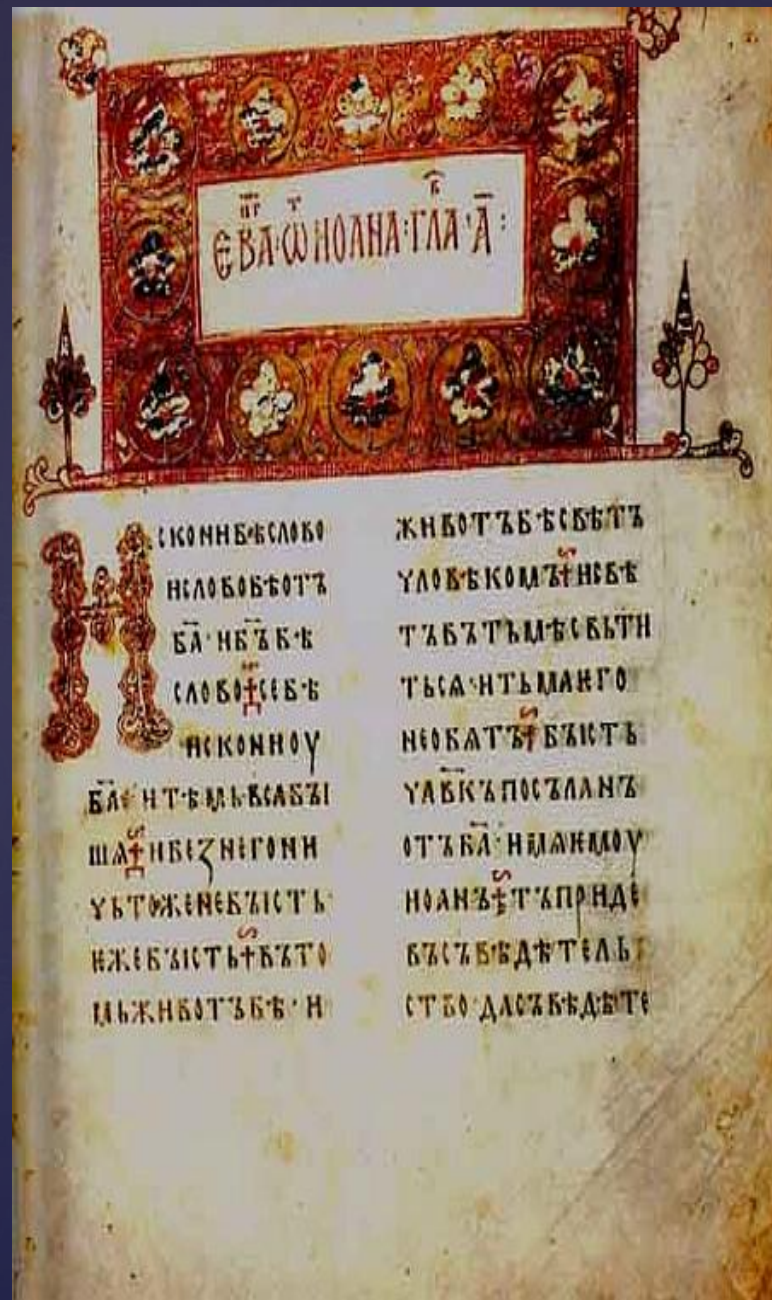 ЄВА҃нг·ѾИОАНА·ГЛА҃в·А҃:
ИСКОНИБѢСЛОВО
ИСЛОВОБѢОТЪ
БА҃·ИБЪ҃БѢ
СЛОВО·СЕБѢ
ИСКОНИОУ
БА҃·ИТѢМЬВСꙖБЪІ
ШѦ·ИБЕꙁНЕГОНИ
ЧЬТОЖЕНЕБЪІСТЬ·
ЕЖЕБЪІСТЬ·ВЪТО
МЬЖИВОТЪБѢ·И
ЖИВОТЪБѢСВѢТЪ
ЧЛОВѢКОМЪ·ИСВѢ
ТЪВЪТЬМѢСВЬТИ
ТЬСѦ·ИТЬМАѤГО
НЕОБѦТЪ·БЪІСТЬ
ЧЛВ҃КЪПОСЪЛАНЪ
ОТЪБА҃·ИМѦѤМОУ
ИОАНЪ·ТЪПРИДЕ
ВЪСЪВѢДѢТЕЛЬ
СТВО·ДАСЪВѢДѢТЕ